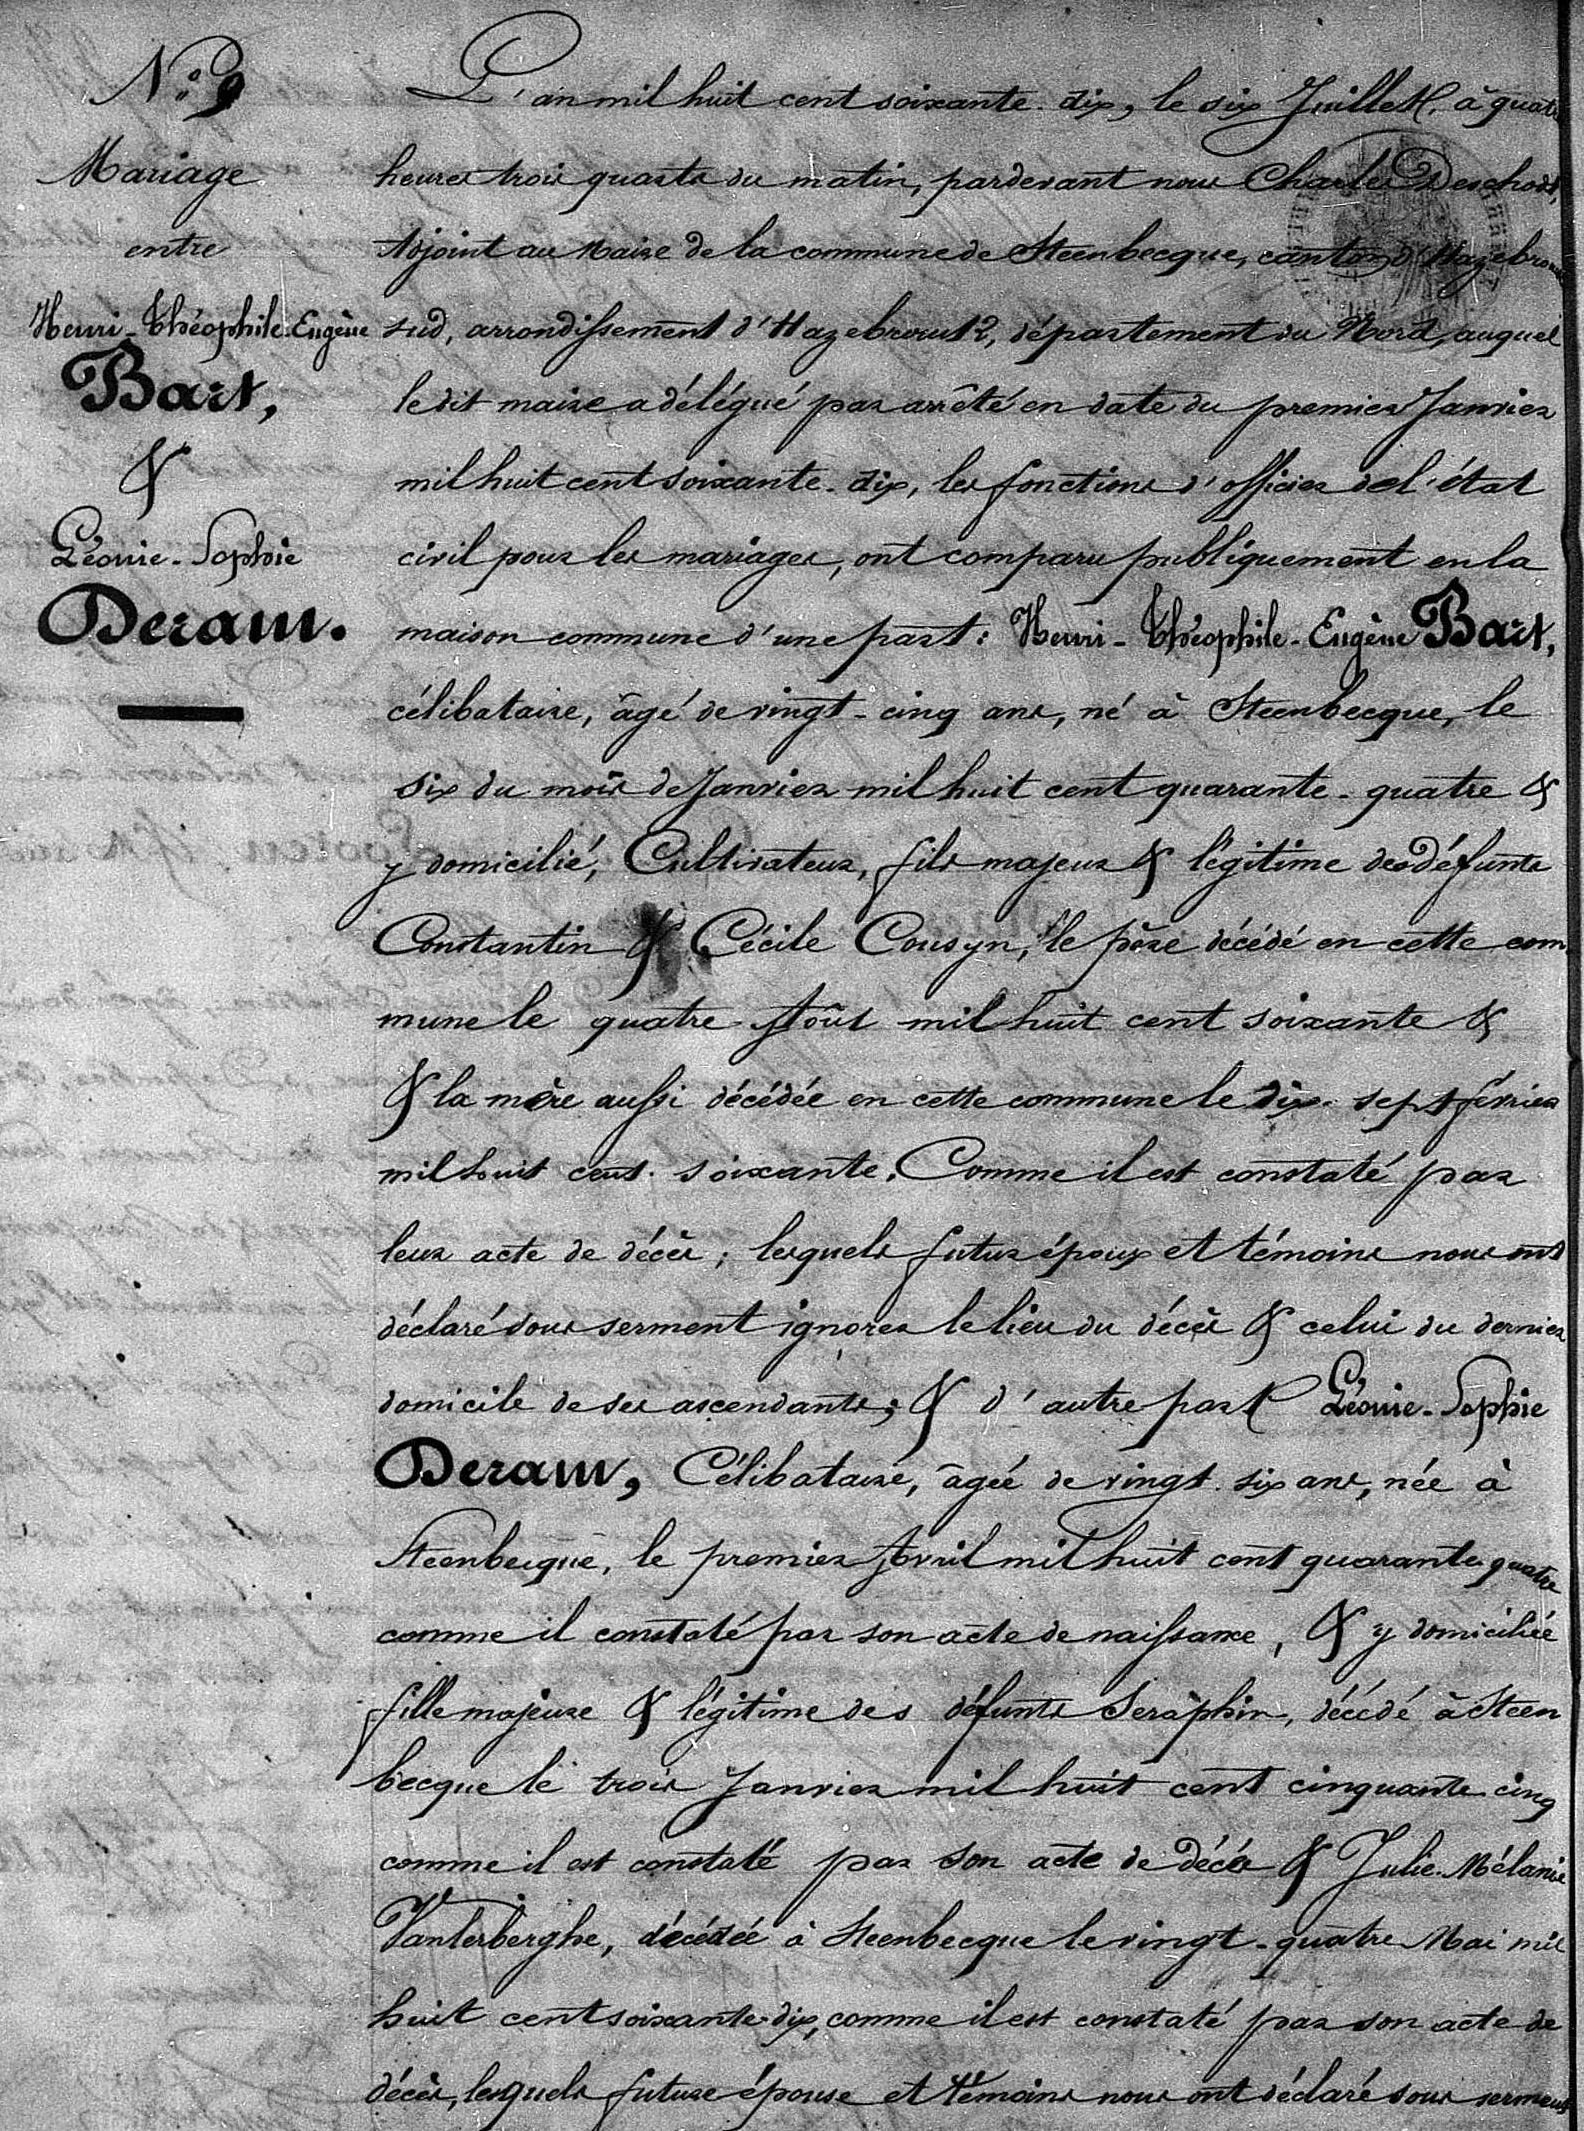 N.° 9
Mariage
entre
Henri-Théophile-Eugène
Bart,
&
Léonie-Sophie
Deram.
L'an mil huit cent soixante-dix, le six Juillet, à quatre
heures trois quarts du matin, pardevant nous Charles Deschodt,
Adjoint au Maire de la commune de Steenbecque, canton d'Hazebrouck
sud, arrondissement d'Hazebrouck, département du Nord, auquel
le dit maire a délégué par arrêté en date du premier Janvier
mil huit cent soixante-dix, les fonctions d'officier de l'état
civil pour les mariages, ont comparu publiquement en la
maison commune d'une part: Henri-Théophile-Eugène Bart,
célibataire, âgé de vingt-cinq ans, né à Steenbecque, le
six du mois de Janvier mil huit cent quarante-quatre &
y domicilié, Cultivateur, fils majeur & légitime des défunts
Constantin & Cécile Cousyn, le père décédé en cette com
mune le quatre Août mil huit cent soixante &
& la mère aussi décédée en cette commune le dix-sept février
mil huit cent soixante. Comme il est constaté par
leur acte de décès; lesquels futur époux et témoins nous ont
déclaré sous serment ignorer le lieu du décès & celui du dernier
domicile de ses ascendants; & d'autre part Léonie-Sophie
Deram, Célibataire, âgée de vingt-six ans, née à
Steenbecque, le premier Avril mil huit cent quarante quatre
comme il constaté par son acte de naissance, & y domiciliée
fille majeure & légitime des défunts Séraphin, décédé à Steen
becque le trois Janvier mil huit cent cinquante-cinq
comme il est constaté par son acte de décès & Julie-Mélanie
Vanterberghe, décédée à Steenbecque le vingt-quatre Mai mil
huit cent soixante-dix, comme il est constaté par son acte de
décès, lesquels future épouse et témoins nous ont déclaré sous serment